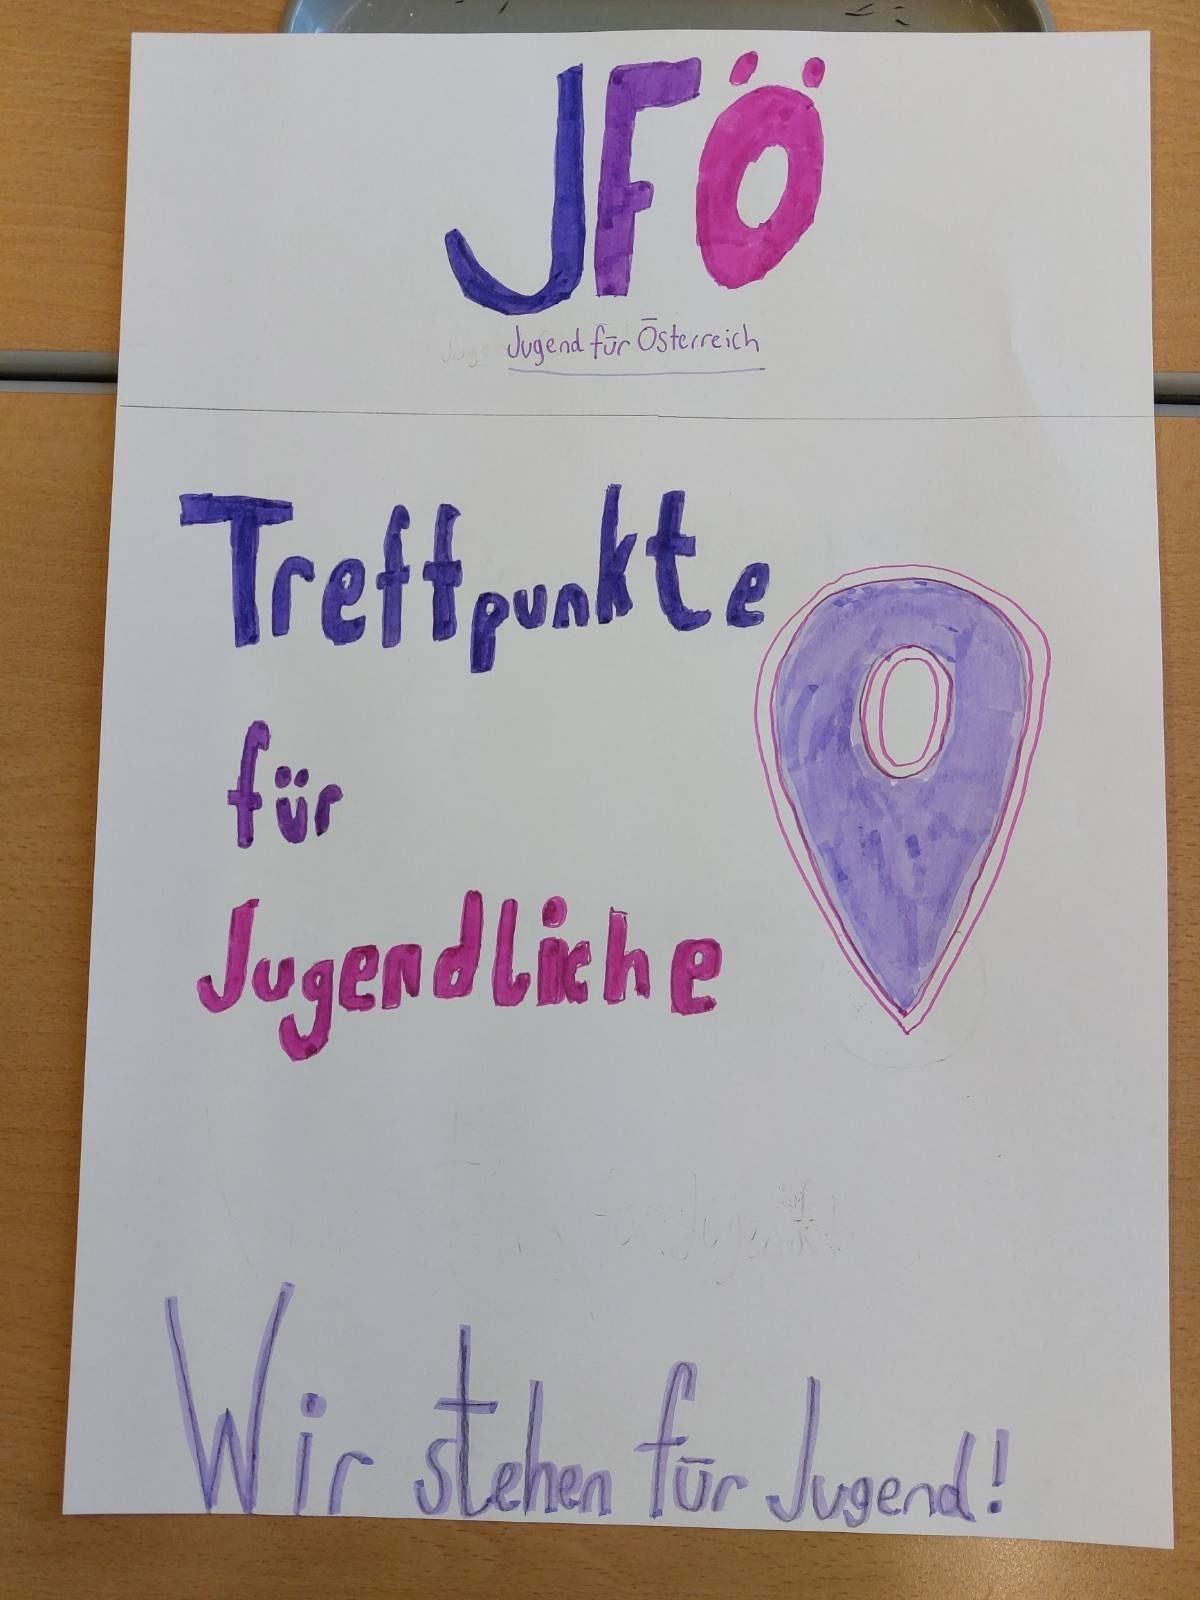 JFÖ
Jugend für Österreich
Treffpunkte
für
Jugendliche
Wir stehen für Jugend!